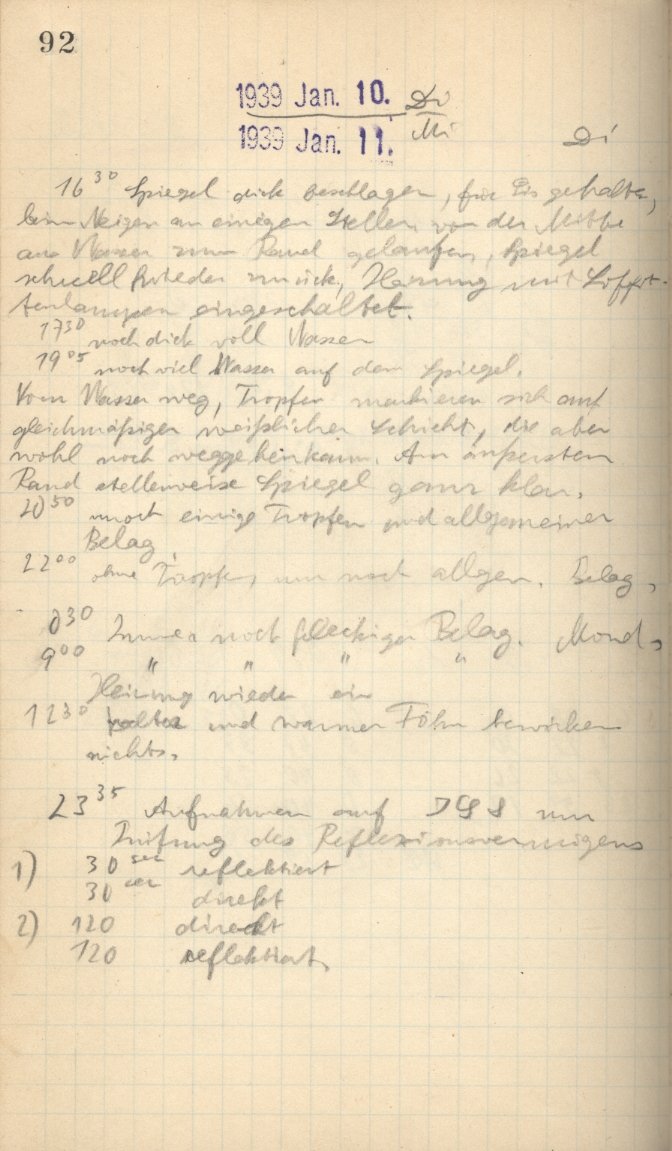 92
1939 Jan. 10. Di
1939 Jan. 11. Mi
Di
16 30 Spiegel dick beschlagen, für Eis gehalten,
beim Neigen an einigen Stellen von der Mitte
aus Wasser zum Rand gelaufen, Spiegel
schnell wieder zurück, Heizung mit Soffit-
tenlampen eingeschaltet.
17 30 noch dick voll Wasser
19 05 noch viel Wasser auf dem Spiegel.
Vom Wasser weg, Tropfen markieren sich auf
gleichmäßiger weißlicher Schicht, die aber
wohl noch weggehen kann. Am äußersten
Rand stellenweise Spiegel ganz klar.
20 50 noch einige Tropfen und allgemeiner
Belag
22 00 ohne Tropfen, nur noch allgem. Belag,
0 30 Immer noch fleckiger Belag. Mond,
9 00 " " " "
Heizung wieder ein
12 30 kalter und warmer Föhn bewirken
nichts.
23 35 Aufnahmen auf zur
Prüfung des Reflexionsvermögens
1) 30 sec reflektiert
30 sec direkt
2) 120 direkt
120 reflektiert,